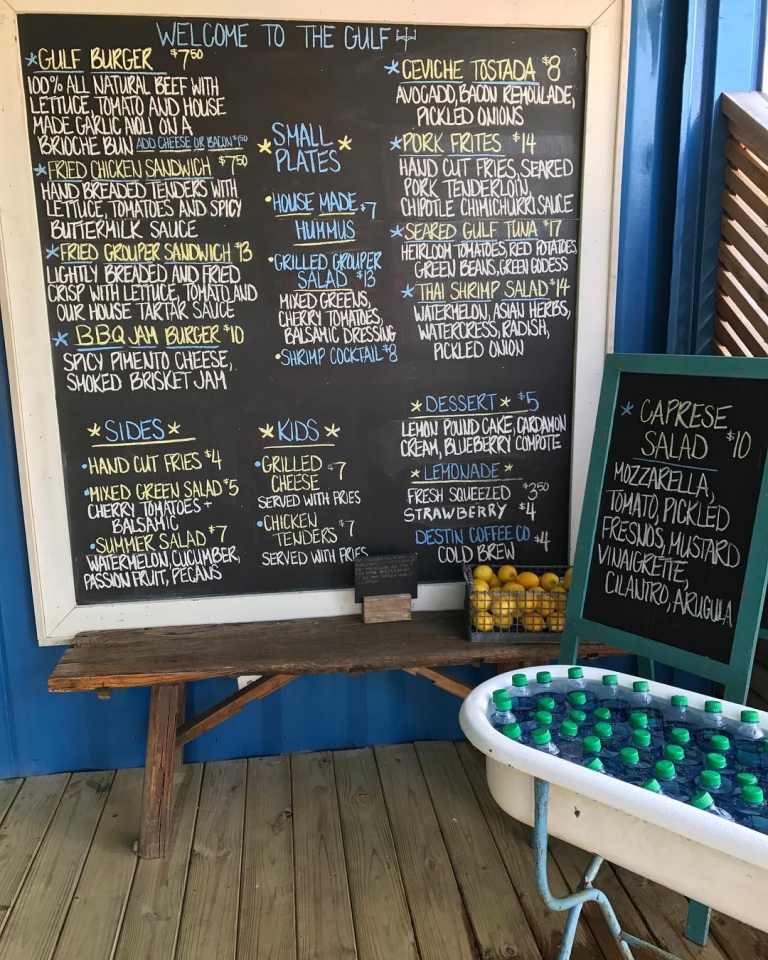 WELCOME TO THE GULF
GULF BURGER $7.50
100% ALL NATURAL BEEF WITH
LETTUCE, TOMATO AND HOUSE
MADE GARLIC AIOLI ON A
BRIOCHE BUN ADD CHEESE OR BACON $1.50
FRIED CHICKEN SANDWICH $7.50
HAND BREADED TENDERS WITH
LETTUCE, TOMATOES AND SPICY
BUTTERMILK SAUCE
FRIED GROUPER SANDWICH $13
LIGHTLY BREADED AND FRIED
CRISP WITH LETTUCE, TOMATO AND
OUR HOUSE TARTAR SAUCE
BBQ JAM BURGER $10
SPICY PIMENTO CHEESE,
SMOKED BRISKET JAM
SIDES
HAND CUT FRIES $4
MIXED GREEN SALAD $5
CHERRY TOMATOES +
BALSAMIC
SUMMER SALAD $7
WATERMELON, CUCUMBER,
PASSION FRUIT, PECANS
SMALL
PLATES
HOUSE MADE $7
HUMMUS
GRILLED GROUPER
SALAD $13
MIXED GREENS,
CHERRY TOMATOES,
BALSAMIC DRESSING
SHRIMP COCKTAIL $8
KIDS
GRILLED
CHEESE $7
SERVED WITH FRIES
CHICKEN
TENDERS $7
SERVED WITH FRIES
CEVICHE TOSTADA $8
AVOCADO, BACON REMOULADE,
PICKLED ONIONS
PORK FRITES $14
HAND CUT FRIES, SEARED
PORK TENDERLOIN,
CHIPOTLE CHIMICHURRI SAUCE
SEARED GULF TUNA $17
HEIRLOOM TOMATOES, RED POTATOES,
GREEN BEANS, GREEN GODESS
THAI SHRIMP SALAD $14
WATERMELON, ASIAN HERBS,
WATERCRESS, RADISH,
PICKLED ONION
DESSERT $5
LEMON POUND CAKE, CARDAMON
CREAM, BLUEBERRY COMPOTE
LEMONADE
FRESH SQUEEZED $3.50
STRAWBERRY $4
DESTIN COFFEE CO
COLD BREW $4
CAPRESE
SALAD $10
MOZZARELLA,
TOMATO, PICKLED
FRESNOS, MUSTARD
VINAIGRETTE,
CILANTRO, ARUGULA